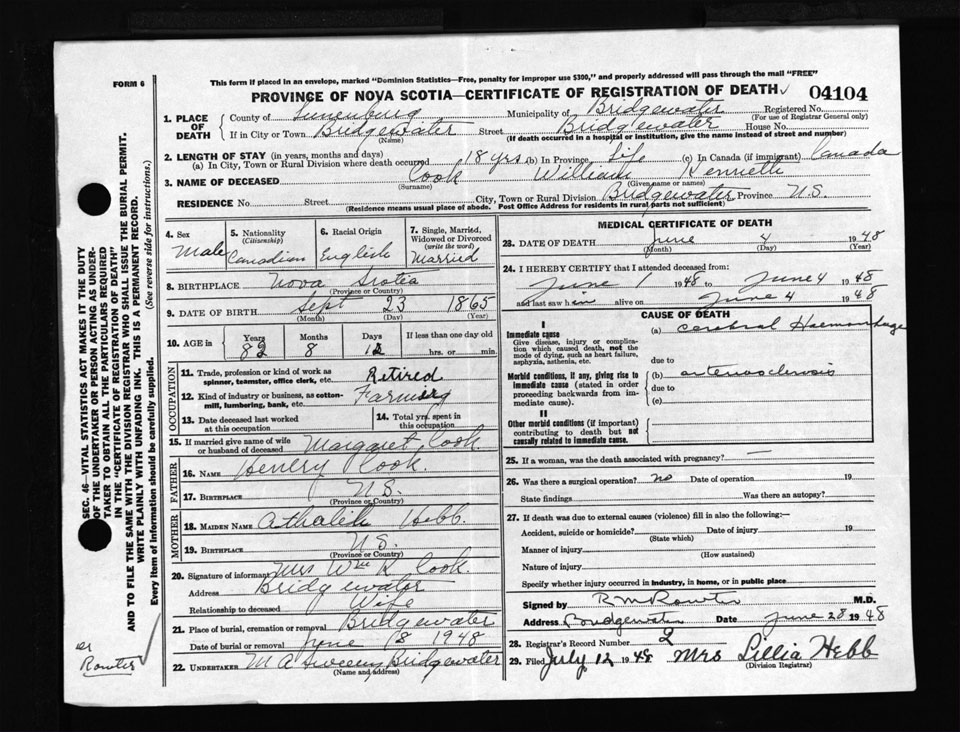 FORM 6
This form if placed in an envelope, marked "Dominion Statistics—Free, penalty for improper use $300," and properly addressed will pass through the mail "FREE"
PROVINCE OF NOVA SCOTIA—CERTIFICATE OF REGISTRATION OF DEATH 04104
1. PLACE OF DEATH County of Lunenburg Municipality of Bridgewater Registered No.
(For use of Registrar General only)
If in City or Town Bridgewater Street Bridgewater House No.
(Name) (If death occurred in a hospital or institution, give the name instead of street and number)
2. LENGTH OF STAY (in years, months and days)
(a) In City, Town or Rural Division where death occurred 18 yrs (b) In Province Life (c) In Canada (if immigrant) Canada
3. NAME OF DECEASED Cook William
(Surname) (Given name or names)
RESIDENCE No. Street City, Town or Rural Division Bridgewater Province N.S.
(Residence means usual place of abode. Post Office Address for residents in rural parts not sufficient)
4. Sex Male
5. Nationality (Citizenship) Canadian
6. Racial Origin English
7. Single, Married, Widowed or Divorced (write the word) Married
8. BIRTHPLACE Nova Scotia
(Province or Country)
9. DATE OF BIRTH Sept 23 1865
(Month) (Day) (Year)
10. AGE in Years 82 Months 8 Days 12 If less than one day
hrs. or min.
OCCUPATION
11. Trade, profession or kind of work as spinner, teamster, office clerk, etc. Retired
12. Kind of industry or business, as cotton-mill, lumbering, bank, etc. Farming
13. Date deceased last worked at this occupation
14. Total yrs. spent in this occupation
15. If married give name of wife or husband of deceased Margaret Cook
FATHER
16. NAME Henery Cook.
17. BIRTHPLACE N.S.
(Province or Country)
MOTHER
18. MAIDEN NAME Hebb.
19. BIRTHPLACE N.S.
(Province or Country)
20. Signature of informant Mrs Wm K Cook.
Address Bridgewater
Relationship to deceased Wife
21. Place of burial, cremation or removal Bridgewater
Date of burial or removal 1948
22. UNDERTAKER M A Sweeny Bridgewater
(Name and address)
MEDICAL CERTIFICATE OF DEATH
23. DATE OF DEATH June 4 1948
(Month) (Day) (Year)
24. I HEREBY CERTIFY that I attended deceased from:
June 1 1948 to June 4 1948
and last saw him alive on June 4 1948
CAUSE OF DEATH
I
Immediate cause
Give disease, injury or complication which caused death, not the mode of dying, such as heart failure, asphyxia, asthenia, etc.
(a) Cerebral Haemorrhage
due to
Morbid conditions, if any, giving rise to immediate cause (stated in order proceeding backwards from immediate cause).
(b) arteriosclerosis
due to
(c)
II
Other morbid conditions (if important) contributing to death but not causally related to immediate cause.
25. If a woman, was the death associated with pregnancy? —
26. Was there a surgical operation? no Date of operation 19
State findings Was there an autopsy?
27. If death was due to external causes (violence) fill in also the following:—
Accident, suicide or homicide? Date of injury 19
(State which)
Manner of injury
(How sustained)
Nature of injury
Specify whether injury occurred in industry, in home, or in public place
Signed by M.D.
Address Bridgewater Date June 28 1948
28. Registrar's Record Number 2
29. Filed July 12 1948 Mrs Lillia Hebb
(Division Registrar)
SEC. 46—VITAL STATISTICS ACT MAKES IT THE DUTY
OF THE UNDERTAKER OR PERSON ACTING AS UNDERTAKER TO OBTAIN ALL THE PARTICULARS REQUIRED
IN THE "CERTIFICATE OF REGISTRATION OF DEATH"
AND TO FILE THE SAME WITH THE DIVISION REGISTRAR WHO SHALL ISSUE THE BURIAL PERMIT.
WRITE PLAINLY WITH UNFADING INK. THIS IS A PERMANENT RECORD.
Every item of Information should be carefully supplied. (See reverse side for instructions.)